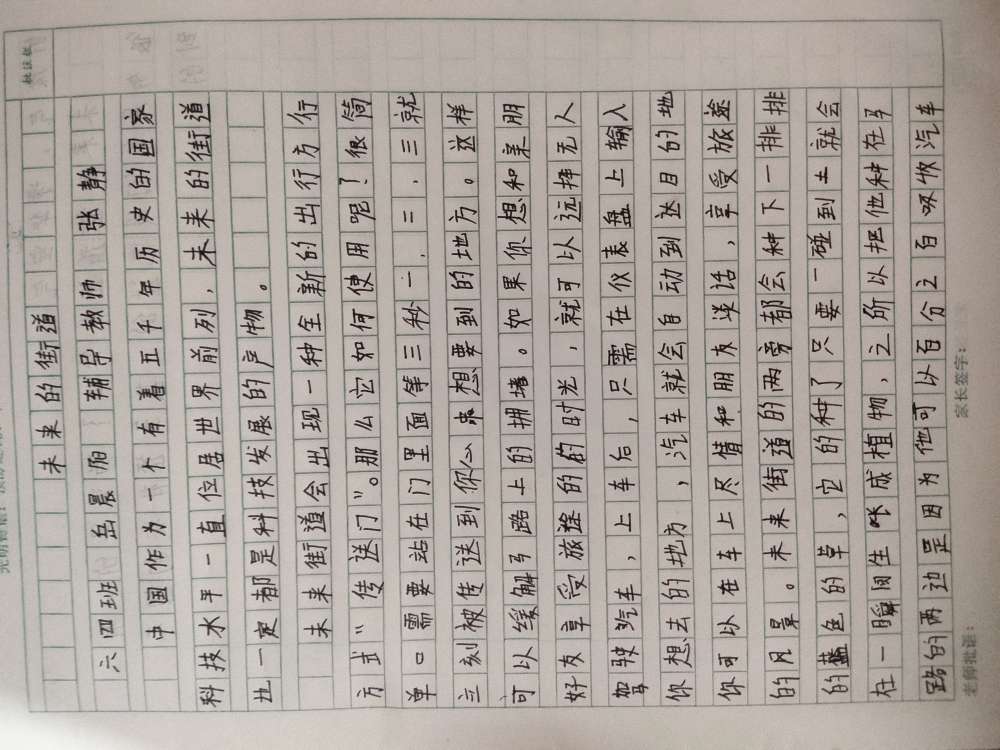 未来的街道
六四班 岳晨阳 辅导教师 张静
中国作为一个有着五千年历史的国家
科技水平一直位居世界前列,未来的街道
也一定都是科技发展的产物。
未来街道会出现一种全新的出行方行
方式“传送门”。那么它如何使用呢?很简
单口需要站在门里面等三秒一.二.三就
立刻被传送到你心中想要到的地方。这样
可以缓解马路上的拥堵。如果你想和亲朋
好友享受旅途的的时光,就可以选择无人
驾驶汽车,上车后,只需在仪表盘上输入
你想去的地方,汽车就会自动到达目的地
你可以在车上尽情和朋友谈话,享受旅途
的风景。未来街道的两旁都会种下一排排
的蓝色的草,它的种了只要一碰到土就会
在一瞬间生 成植物,之所以把他种在马
路的两边是因为他可以百分之百吸收汽车
老师批语:
家长签字: